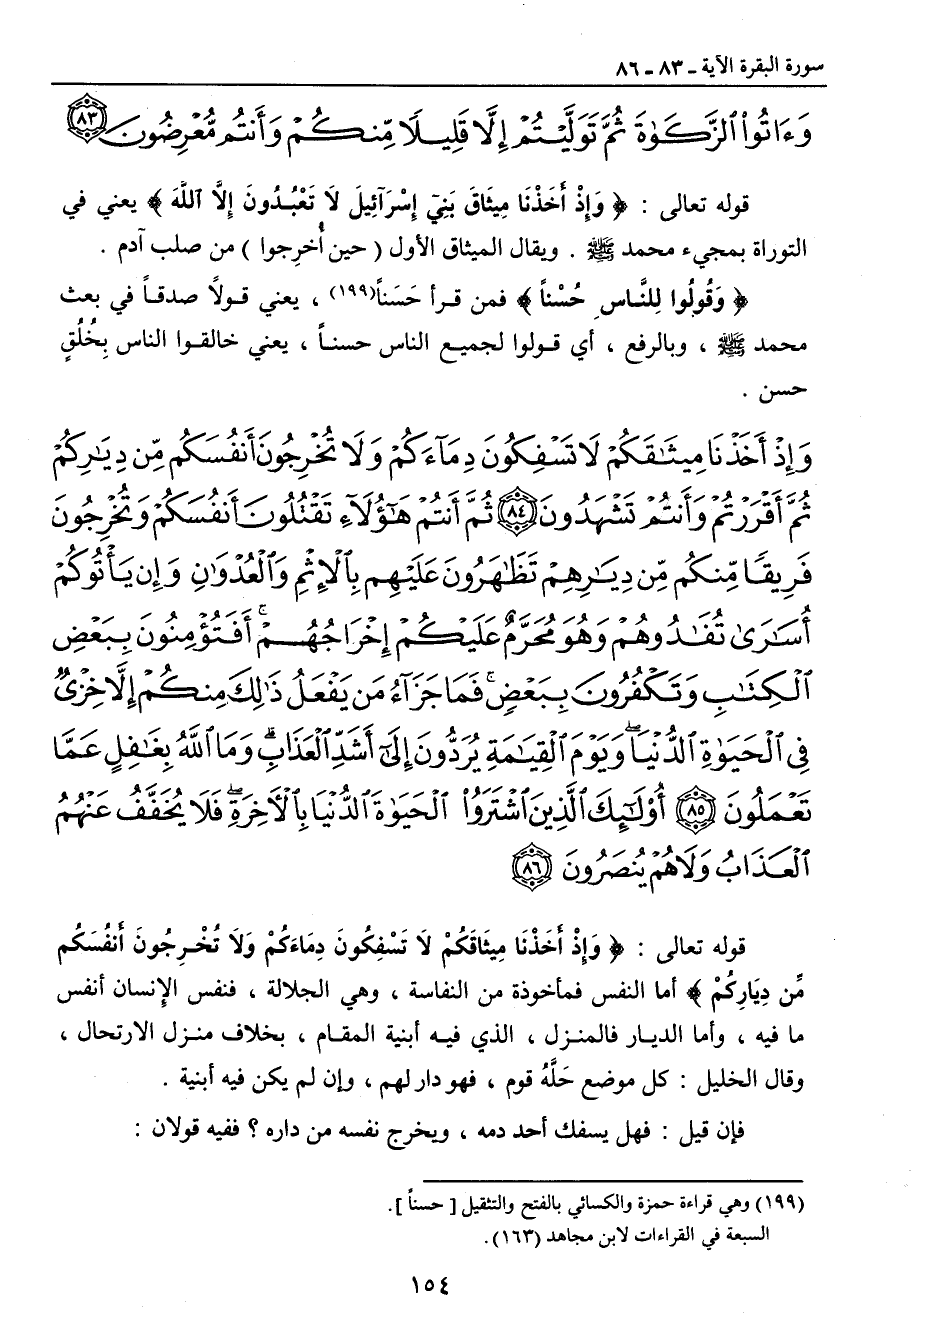 سورة البقرة الآية ـ ٨٣ ـ ٨٦
وَءَاتُوا۟ ٱلزَّكَوٰةَ ثُمَّ تَوَلَّيْتُمْ إِلَّا قَلِيلًا مِّنكُمْ وَأَنتُم مُّعْرِضُونَ ٨٣
قوله تعالى : ﴿ وَإِذْ أَخَذْنَا مِيثَاقَ بَنِيٓ إِسْرَآئِيلَ لَا تَعْبُدُونَ إِلَّا ٱللَّهَ ﴾ يعني في
التوراة بمجيء محمد ﷺ . ويقال الميثاق الأول ( حين أُخرِجوا ) من صلب آدم .
﴿ وَقُولُوا لِلنَّاسِ حُسْناً ﴾ فمن قرأ حَسَناً(١٩٩) ، يعني قولاً صدقاً في بعث
محمد ﷺ ، وبالرفع ، أي قولوا لجميع الناس حسناً ، يعني خالقوا الناس بِخُلُقٍ
حسن .
وَإِذْ أَخَذْنَا مِيثَٰقَكُمْ لَا تَسْفِكُونَ دِمَآءَكُمْ وَلَا تُخْرِجُونَ أَنفُسَكُم مِّن دِيَٰرِكُمْ
ثُمَّ أَقْرَرْتُمْ وَأَنتُمْ تَشْهَدُونَ ٨٤ ثُمَّ أَنتُمْ هَٰٓؤُلَآءِ تَقْتُلُونَ أَنفُسَكُمْ وَتُخْرِجُونَ
فَرِيقًا مِّنكُم مِّن دِيَٰرِهِمْ تَظَٰهَرُونَ عَلَيْهِم بِٱلْإِثْمِ وَٱلْعُدْوَٰنِ وَإِن يَأْتُوكُمْ
أُسَٰرَىٰ تُفَٰدُوهُمْ وَهُوَ مُحَرَّمٌ عَلَيْكُمْ إِخْرَاجُهُمْ ۚ أَفَتُؤْمِنُونَ بِبَعْضِ
ٱلْكِتَٰبِ وَتَكْفُرُونَ بِبَعْضٍ ۚ فَمَا جَزَآءُ مَن يَفْعَلُ ذَٰلِكَ مِنكُمْ إِلَّا خِزْىٌ
فِى ٱلْحَيَوٰةِ ٱلدُّنْيَا ۖ وَيَوْمَ ٱلْقِيَٰمَةِ يُرَدُّونَ إِلَىٰٓ أَشَدِّ ٱلْعَذَابِ ۗ وَمَا ٱللَّهُ بِغَٰفِلٍ عَمَّا
تَعْمَلُونَ ٨٥ أُو۟لَٰٓئِكَ ٱلَّذِينَ ٱشْتَرَوُا۟ ٱلْحَيَوٰةَ ٱلدُّنْيَا بِٱلْءَاخِرَةِ ۖ فَلَا يُخَفَّفُ عَنْهُمُ
ٱلْعَذَابُ وَلَا هُمْ يُنصَرُونَ ٨٦
قوله تعالى : ﴿ وَإِذْ أَخَذْنَا مِيثَاقَكُمْ لَا تَسْفِكُونَ دِمَاءَكُمْ وَلَا تُخْرِجُونَ أَنفُسَكُم
مِّن دِيَارِكُمْ ﴾ أما النفس فمأخوذة من النفاسة ، وهي الجلالة ، فنفس الإنسان أنفس
ما فيه ، وأما الديار فالمنزل ، الذي فيه أبنية المقام ، بخلاف منزل الارتحال ،
وقال الخليل : كل موضع حَلَّهُ قوم ، فهو دار لهم ، وإن لم يكن فيه أبنية .
فإن قيل : فهل يسفك أحد دمه ، ويخرج نفسه من داره ؟ ففيه قولان :
(١٩٩) وهي قراءة حمزة والكسائي بالفتح والتثقيل [ حسناً ].
السبعة في القراءات لابن مجاهد (١٦٣).
١٥٤